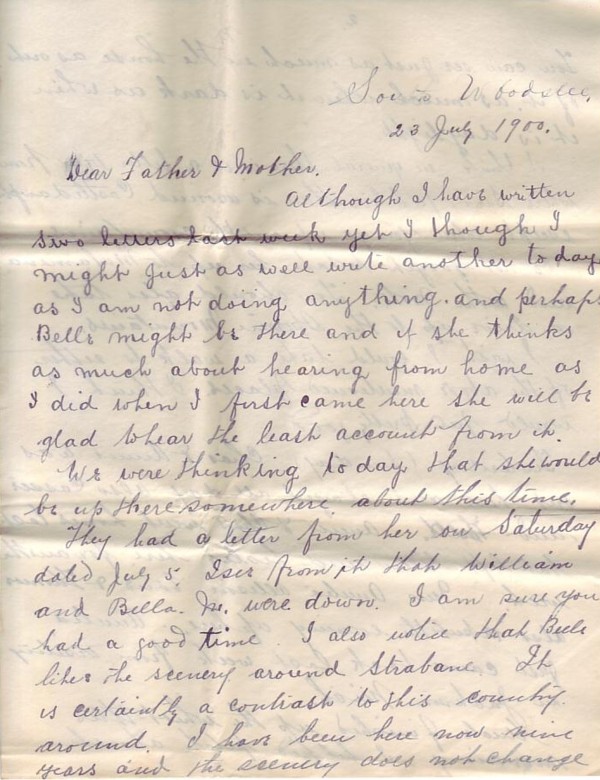 South Woodslee,
23 July 1900.
Dear Father & Mother.
Although I have written
two letters last week yet I though I
might just as well write another to day
as I am not doing anything. and perhaps
Bella might be there and if she thinks
as much about hearing from home as
I did when I first came here she will be
glad to hear the least account from it.
We were thinking to day that she would
be up there somewhere about this time.
They had a letter from her on Saturday
dated July 5. I see from it that William
and Bella. were down. I am sure you
had a good time. I also notice that Bella
likes the scenery around Strabane. It
is certaintly a contrast to this country
around. I have been here now nine
years and the scenery does not change